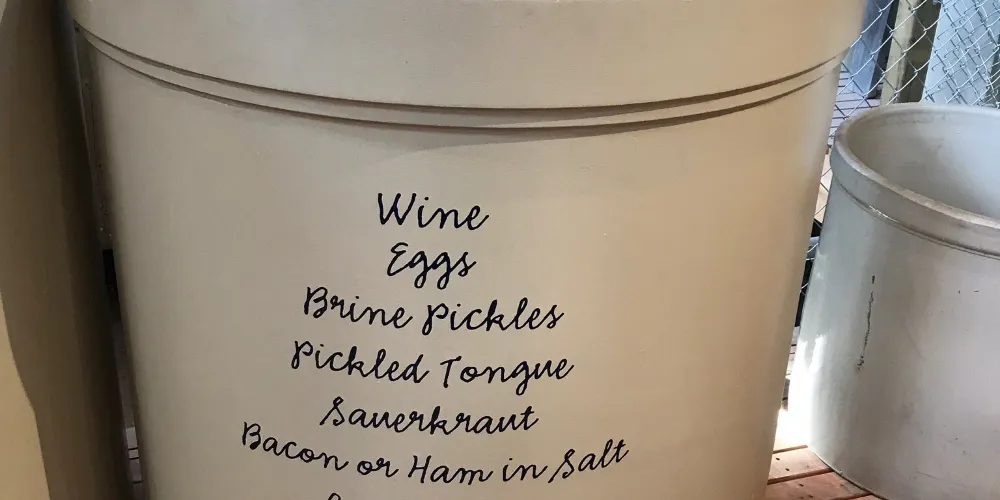 Wine
Eggs
Brine Pickles
Pickled Tongue
Sauerkraut
Bacon or Ham in Salt